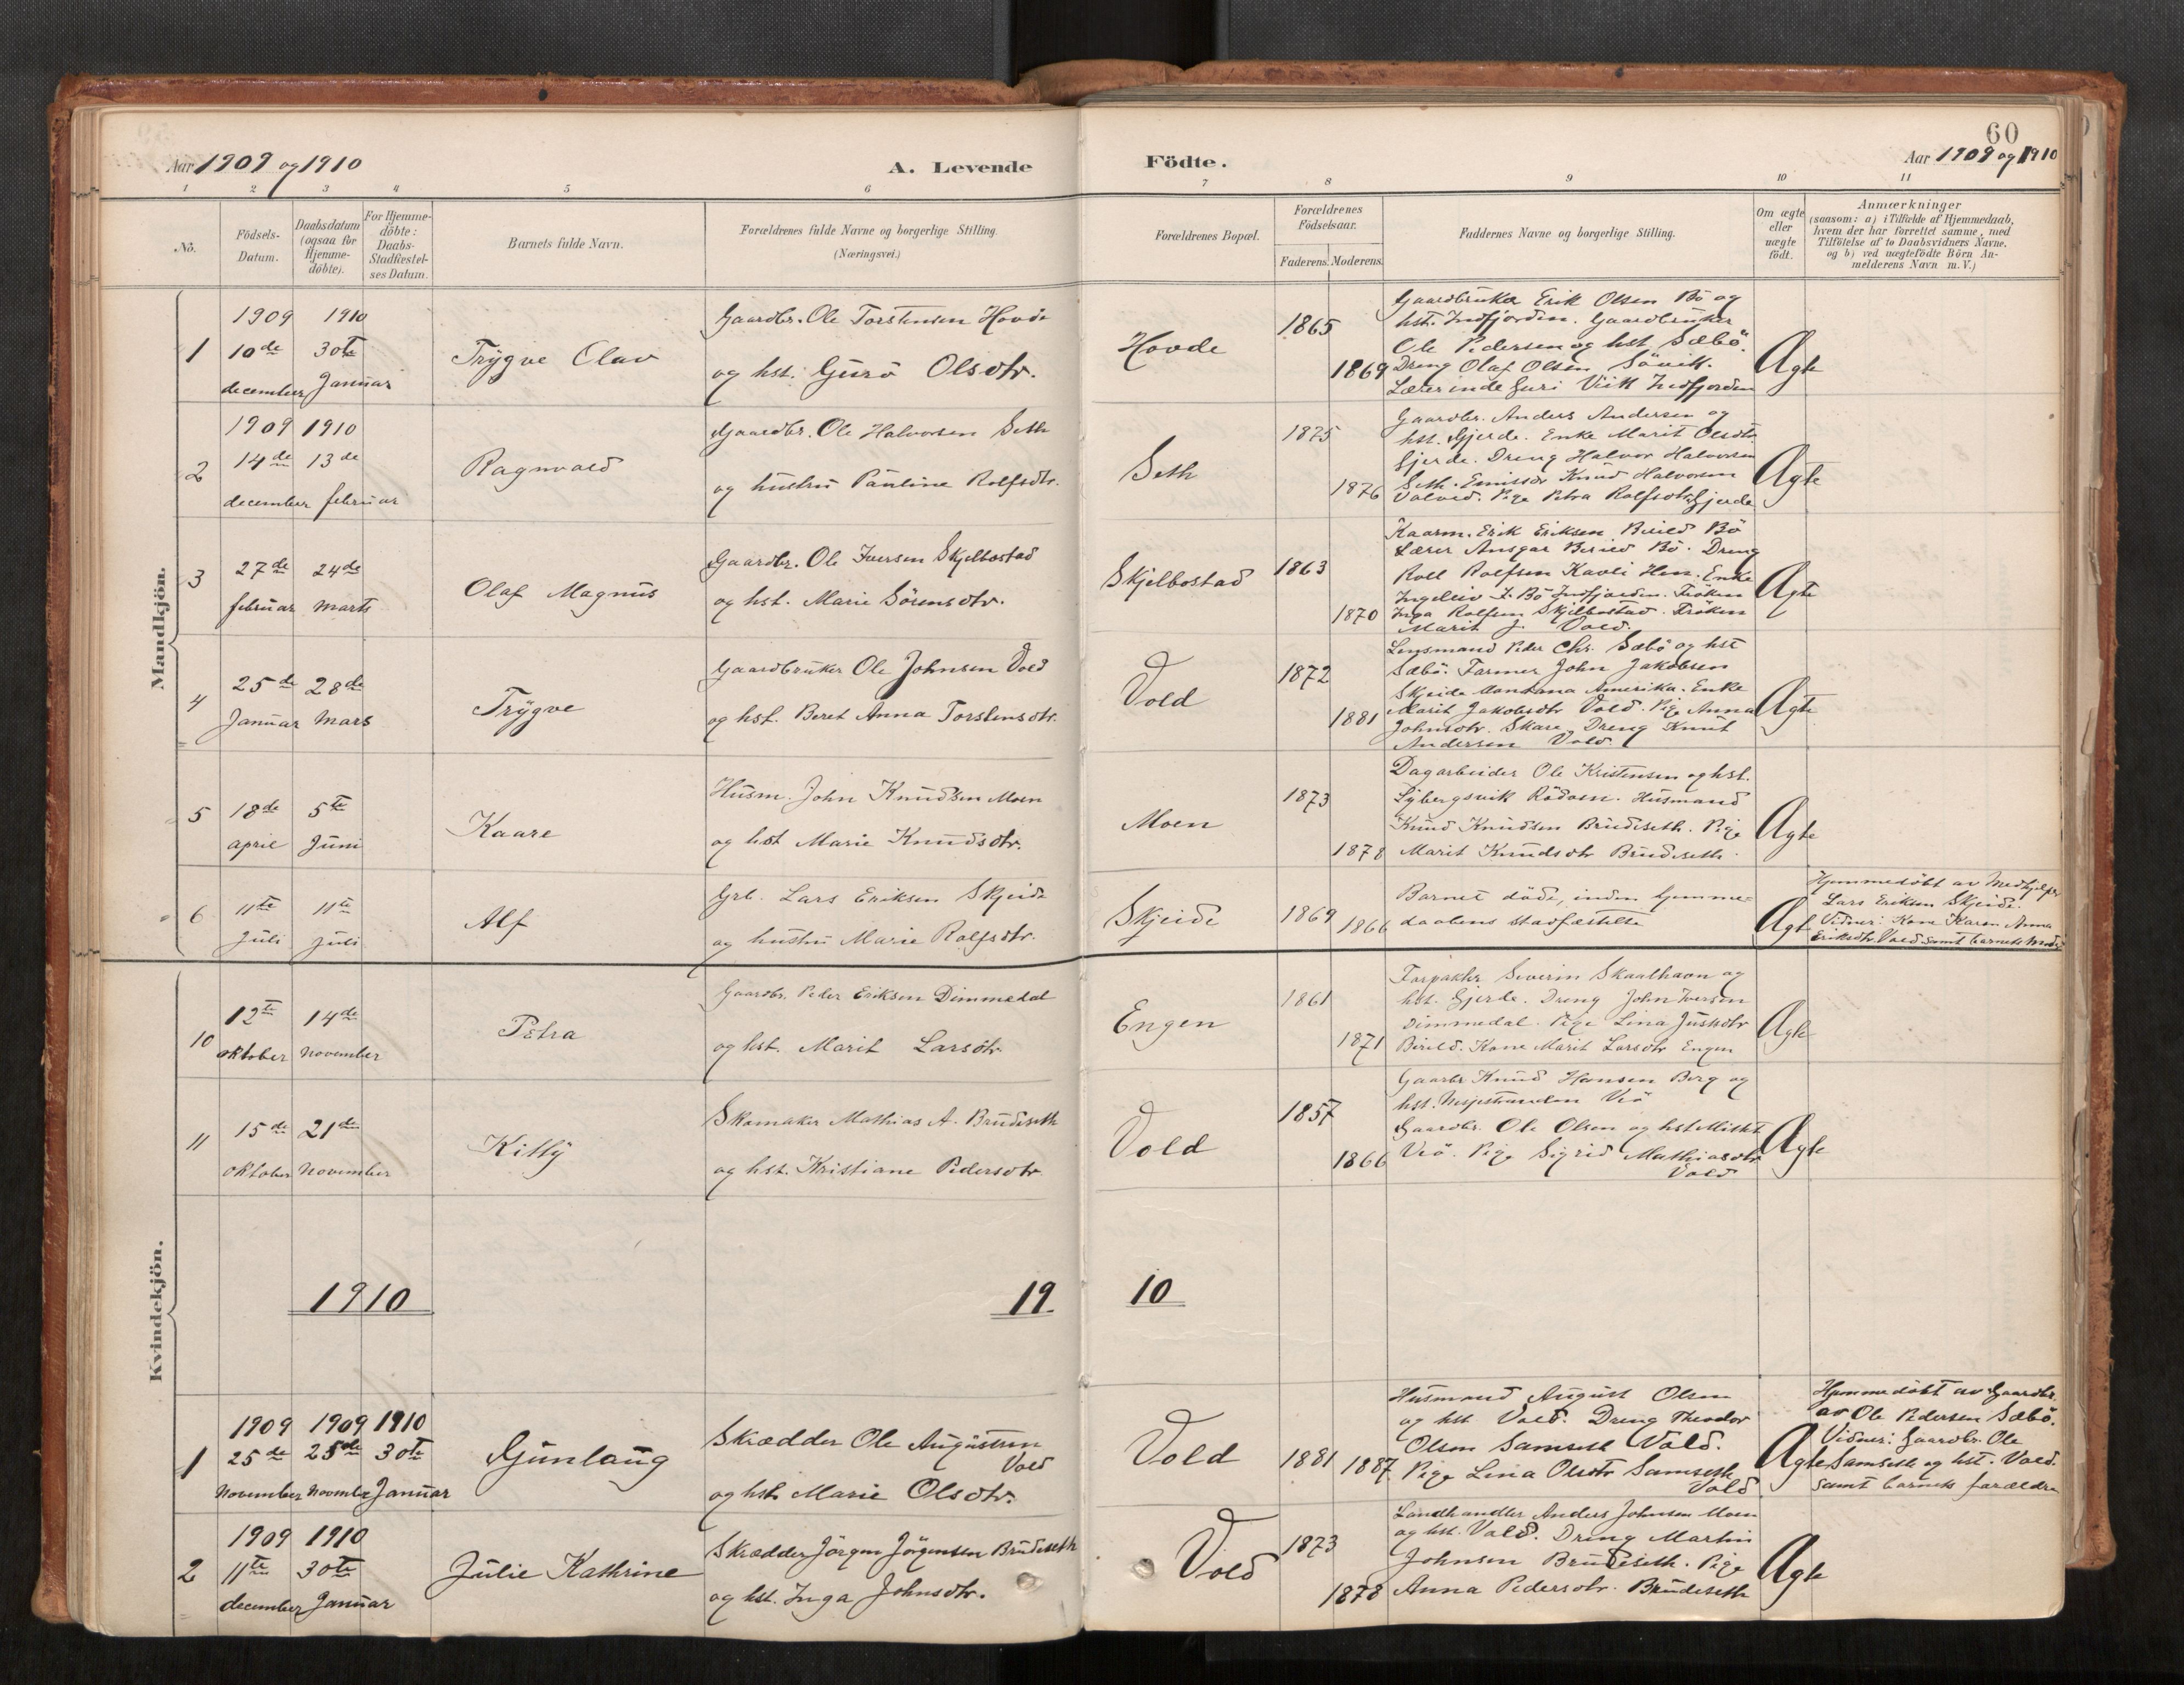 60
Aar 1909 og 1910
A. Levende Födte.
Aar 1909 og 1910
1 2 3 4 5 6 7 8 9 10 11
Nö.
Födsels-Datum.
Daabsdatum (ogsaa for Hjemme-döbte).
For Hjemme-döbte: Daabs-Stadfæstel-ses Datum.
Barnets fulde Navn.
Forældrenes fulde Navne og borgerlige Stilling.
(Næringsvei.)
Forældrenes Bopæl.
Forældrenes Födselsaar.
Faderens. Moderens.
Faddernes Navne og borgerlige Stilling.
Om ægte eller uægte födt.
Anmærkninger
(saasom: a) i Tilfælde af Hjemmedaab,
hvem der har forrettet samme, med
Tilföielse af to Daabsvidners Navne.
og b) ved uægtefödte Börn An-
melderens Navn m.V.)
Mandkjön.
1
1909 10de december
1910 30te Januar
Trygve Olav
Gaardbr. Ole Torstensen Hovde
og hst. Guro Olsdtr.
Hovde
1865
1869
Gaardbruker Erik Olsen Bö og
hst. Indfjorden. Gaardbruker
Ole Pedersen og hst Sæbö.
Dreng Olaf Olsen Sövik.
Lærerinde Guri Viik Indfjorden
Ægte
2
1909 14de december
1910 13de februar
Ragnvald
Gaardbr. Ole Halvorsen Seth
og hustru Pauline Rolfsdtr.
Seth
1875
1876
Gaardbr. Anders Andersen og
hst. Gjerde. Enke Marit Olsdtr
Gjerde. Dreng Halvor Halvorsen
Seth. Emissær Knud Halvorsen
Pige Petra Rolfsdtr Gjerde
Ægte
3
27de februar
24de marts
Olaf Magnus
Gaardbr. Ole Iversen Skjelbostad
og hst. Marie Sörensdtr.
Skjelbostad
1863
1870
Kaarm. Erik Eriksen Bö
Lærer Ansgar Bö. Dreng
Rolf Rolfsen Kavli Hen. Enke
Bö Indfjorden. Fröken
Inga Rolfsen Skjelbostad. Fröken
Marit J. Vold.
Ægte
4
25de Januar
28de Mars
Trygve
Gaardbruker Ole Johnsen Vold
og hst. Beret Anna Torstensdtr.
Vold
1872
1881
Lensmand Peder Chr. Sæbö og hst
Sæbö. Farmer John Jakobsen
Skeide Montana Amerika. Enke
Marit Jakobsdtr Vold. Pige Anna
Johnsdtr. Skare. Dreng Knut
Andersen Vold.
Ægte
5
18de april
5te Juni
Kaare
Husm. John Knudsen Moen
og hst Marie Knudsdtr.
Moen
1873
1878
Dagarbeider Ole Kristensen og hst.
Lybergsvik Rödven. Husmand
Knud Knudsen Brudeseth. Pige
Marit Knudsdtr Brudeseth.
Ægte
6
11te Juli
11te Juli
Alf
Grb. Lars Eriksen Skjeide
og hustru Marie Rolfsdtr.
Skjeide
1869
1866
Barnet döde, inden hjemme-
daabens stadfæstelse
Ægte
Hjemmedöbt av Medhjelper
Lars Eriksen Skjeide.
Vidner: Kone Karen Anna
Eriksdtr. Vold samt barnets Moder
Kvindekjön.
10
12te oktober
14de november
Petra
Gaardbr. Peder Eriksen Dimmedal
og hst. Marit Larsdtr.
Engen
1861
1871
Forpakter Severin Skaalhavn og
hst. Gjerde. Dreng John Iversen
Dimmedal. Pige Lina Justsdtr
Kone Marit Larsdtr Engen
Ægte
11
15de oktober
21de november
Kitty
Skomaker Mathias A. Brudeseth
og hst. Kristiane Pedersdtr.
Vold
1857
1866
Gaardbr Knud Hansen Berg og
hst. Nesjestranden Veö
Gaardbr. Ole Olsen og hst Mittet
Veö. Pige Sigrid Mathiasdtr
Vold
Ægte
1910
19 10
1
1909 25de November
1909 25de Novembr
1910 30te Januar
Gunlaug
Skrædder Ole Augustsen
Vold
og hst. Marie Olsdtr.
Vold
1881
1887
Husmand August Olsen
og hst Vold. Dreng Theodor
Olsen Samseth Vold.
Pige Lina Olsdtr Samseth
Vold
Ægte
Hjemmedöbt av Gaardbr.
av Ole Pedersen Sæbö.
Vidner: Gaardbr. Ole
Samseth og hst. Vold.
samt barnets forældre
2
1909 11te december
1910 30te Januar
Julie Kathrine
Skrædder Jörgen Jörgensen Brudeseth
og hst. Inga Johnsdtr.
Vold
1873
1878
Landhandler Anders Johnsen Moen
og hst. Vold. Dreng Martin
Johnsen Brudeseth. Pige
Anna Pedersdtr. Brudeseth
Ægte